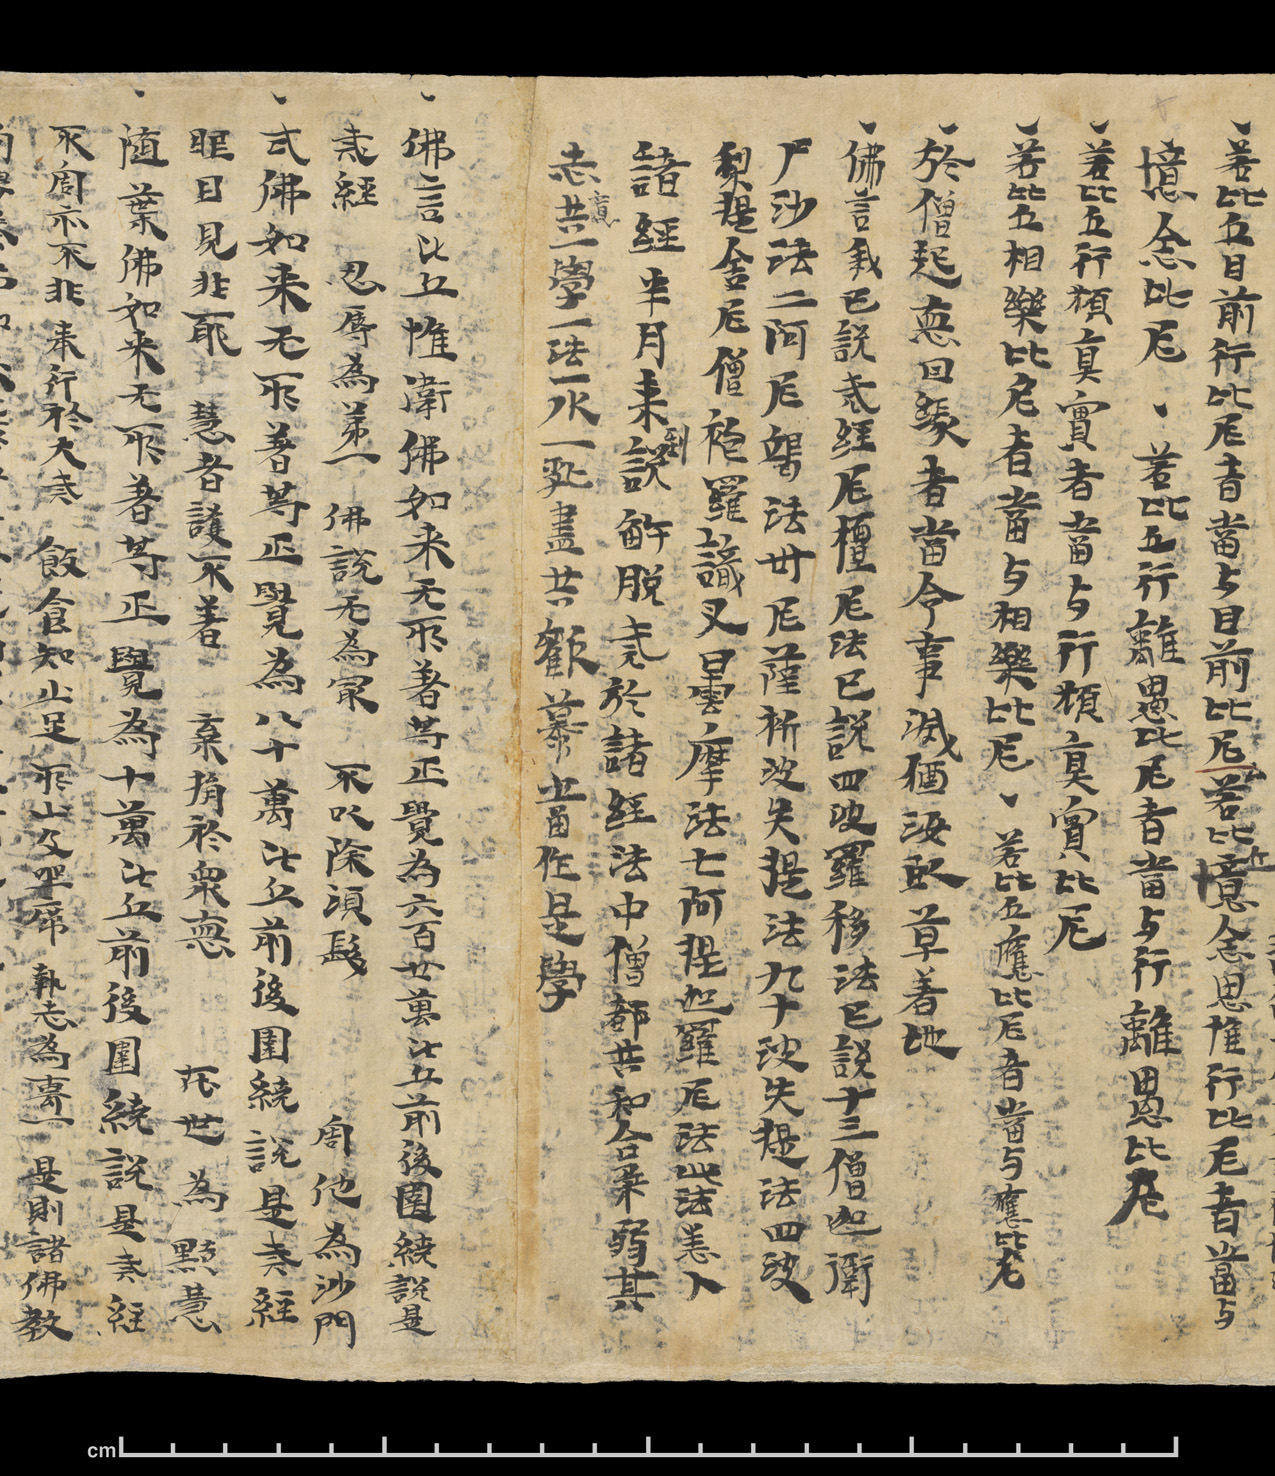 若比丘目前行比尼者當与目前比尼 若比丘憶念思惟行比尼者當与
憶念比尼 若比丘行離愚比尼者當与行離愚比尼
若比丘行類真實者當与行類真實比尼
若比丘相樂比尼者當与相樂比尼 若比丘應比尼者當与應比尼
於僧起惡因緣者當令事滅猶汝卧草著地
佛言我已說戒經尼檀尼法已說四波羅移法已說十三僧迦衛
尸沙法二阿尼竭法卅尼薩祈波失提法九十波失提法四波
梨提舍尼僧袍羅識叉曰雲摩法七阿提迦羅尼法此法恙入
諸經半月来到說解脫戒於諸經法中僧都共和合柔弱其
志共意一學一法一水一乳盡共歡慕 當作是學
佛言比丘惟衛佛如来无所著等正覺為六百廿萬比丘前後圍繞說是
戒經 忍辱為第一 佛說无為㝡 不以除須髮 周他為沙門
式佛如来无所著等正覺為八十萬比丘前後圍繞說是戒經
眼目見非耶 慧者護不著 棄捐於衆惡 在世為黠慧
随葉佛如来无所著等正覺為十萬比丘前後圍繞說是戒經
不㨶亦不非 来行於大戒 飯食知止足 所止及坐席 執志為專一 是則諸佛教